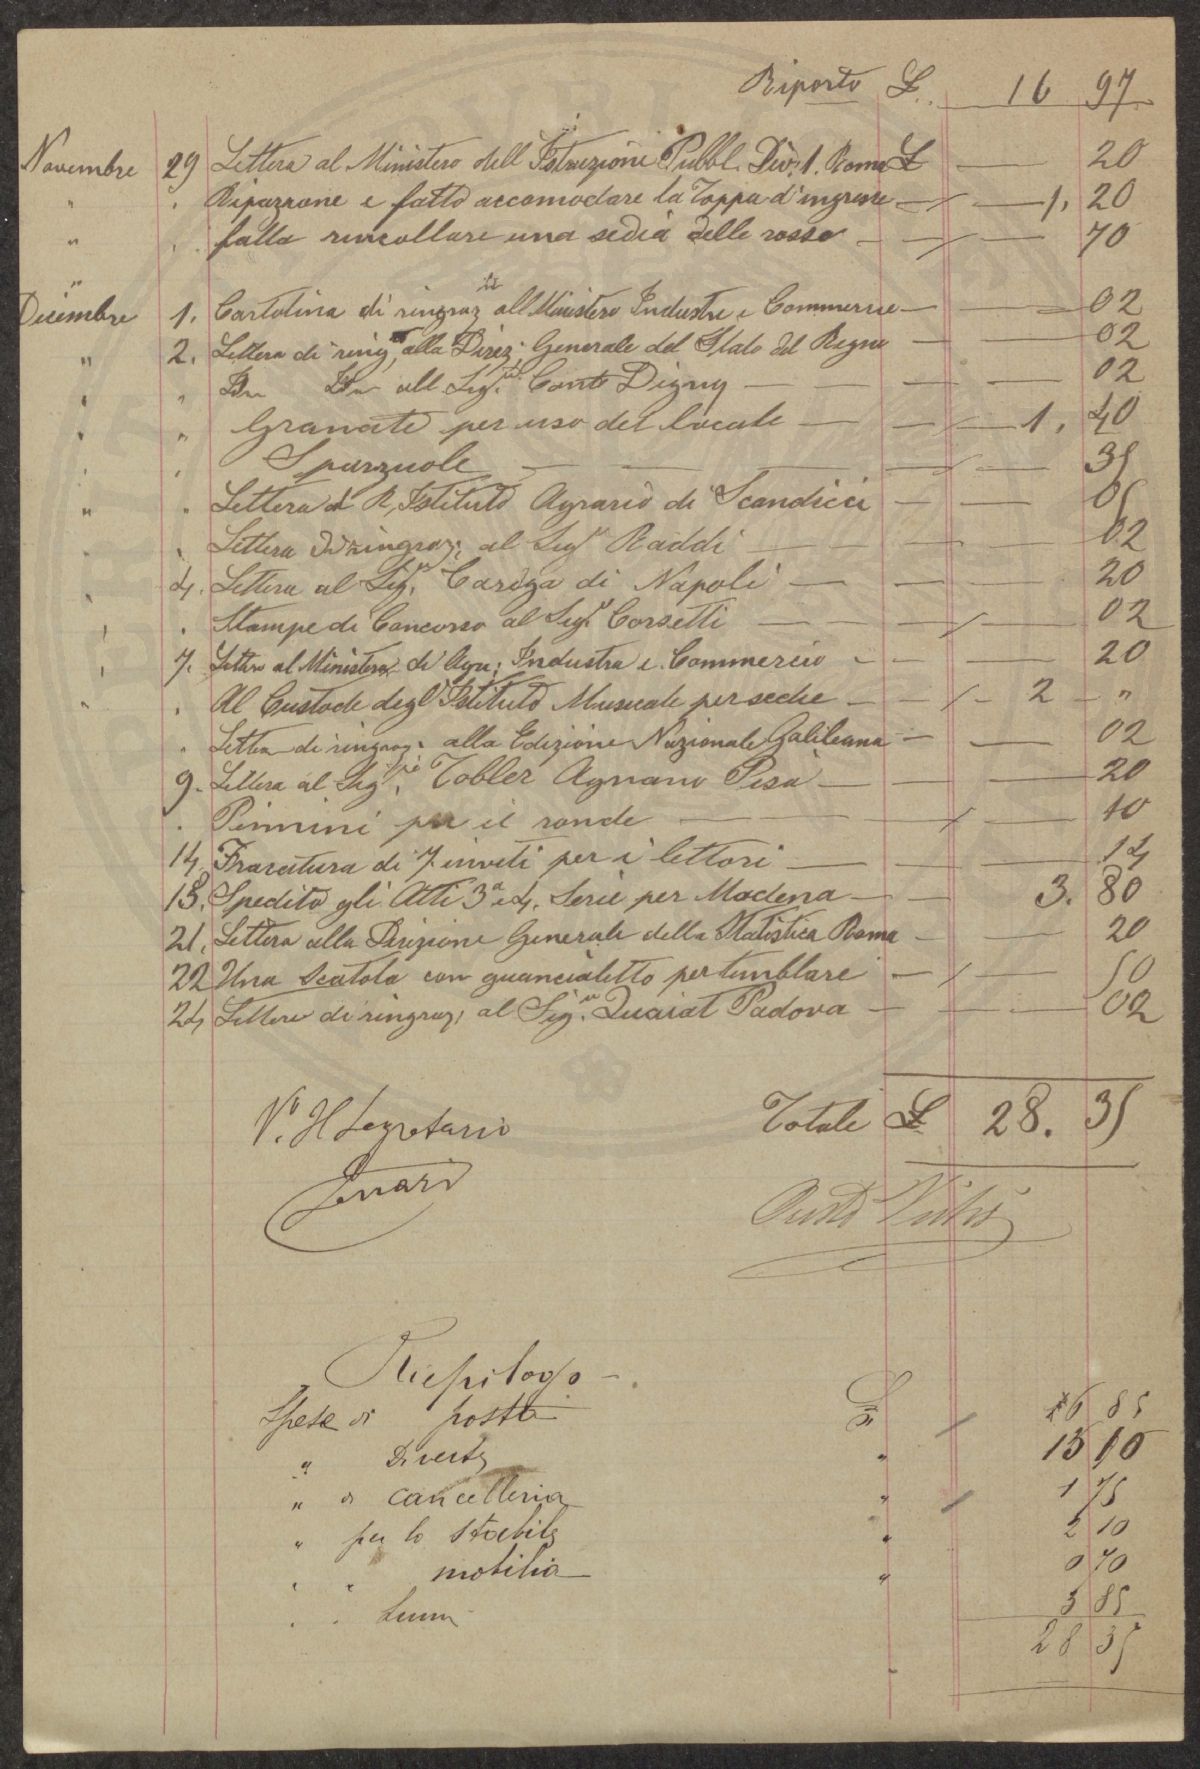 Riporto £. 16 97
Novembre 29 Lettera al Ministero dell'Istruzione Pubbl. Div: 1. Roma £ — 20
" . Riparzione e fatto accomodare la Toppa d'ingresse — 1, 20
" . fatto rincollare una sedia delle rosse — 70
"
Decembre 1. Cartolina di ringraz.ti all Ministero Industri e Commercie — 02
" 2. Lettera di ring. alla Direz: Generale del Stato del Regno — 02
" " D.o D.o all Sig.r Conte Digny — 02
" " Granate per uso del locale — 1, 40
" . Spazzuole — 35
" " Lettera al R. Istituto Agrario di Scandicci — 05
" Lettera di ringraz; al Sig.r Raddi — 02
" 4. Lettera al Sig.r Cariga di Napoli — 20
" . Stampe di Concorso al Sig.r Corsetti — 02
" 7. Lettera al Ministero di Agri: Industra e Commercio — 20
" . Al Custode degl'Istituto Musicale per sedie — 2 — "
" Lettera di ringraz: alla Edizione Nazionale Galileana — 02
9. Lettera al Sig.re Tobler Agnano Pisa — 20
. Pennini per il ronde — 10
14. Francatura di 7 inviti per i lettori — 14
18. Spedito gli Atti 3a e 4. Serie per Modena — 3. 80
21, Lettera alla Direzione Generale della Statistica Roma — 20
22 Una Scatola con guancialetto per timblare — 50
24 Lettera di ringraz, al Sig.r Quaiat Padova — 02
Totale £ 28. 35
V.o Il Segretario
Riepilogo
Spese di posta £ 6 85
" Diverse " 13 10
" di cancelleria " 1 75
" per lo stabile " 2 10
" " mobilia " 0 70
" " Lumi 3 85
28 35